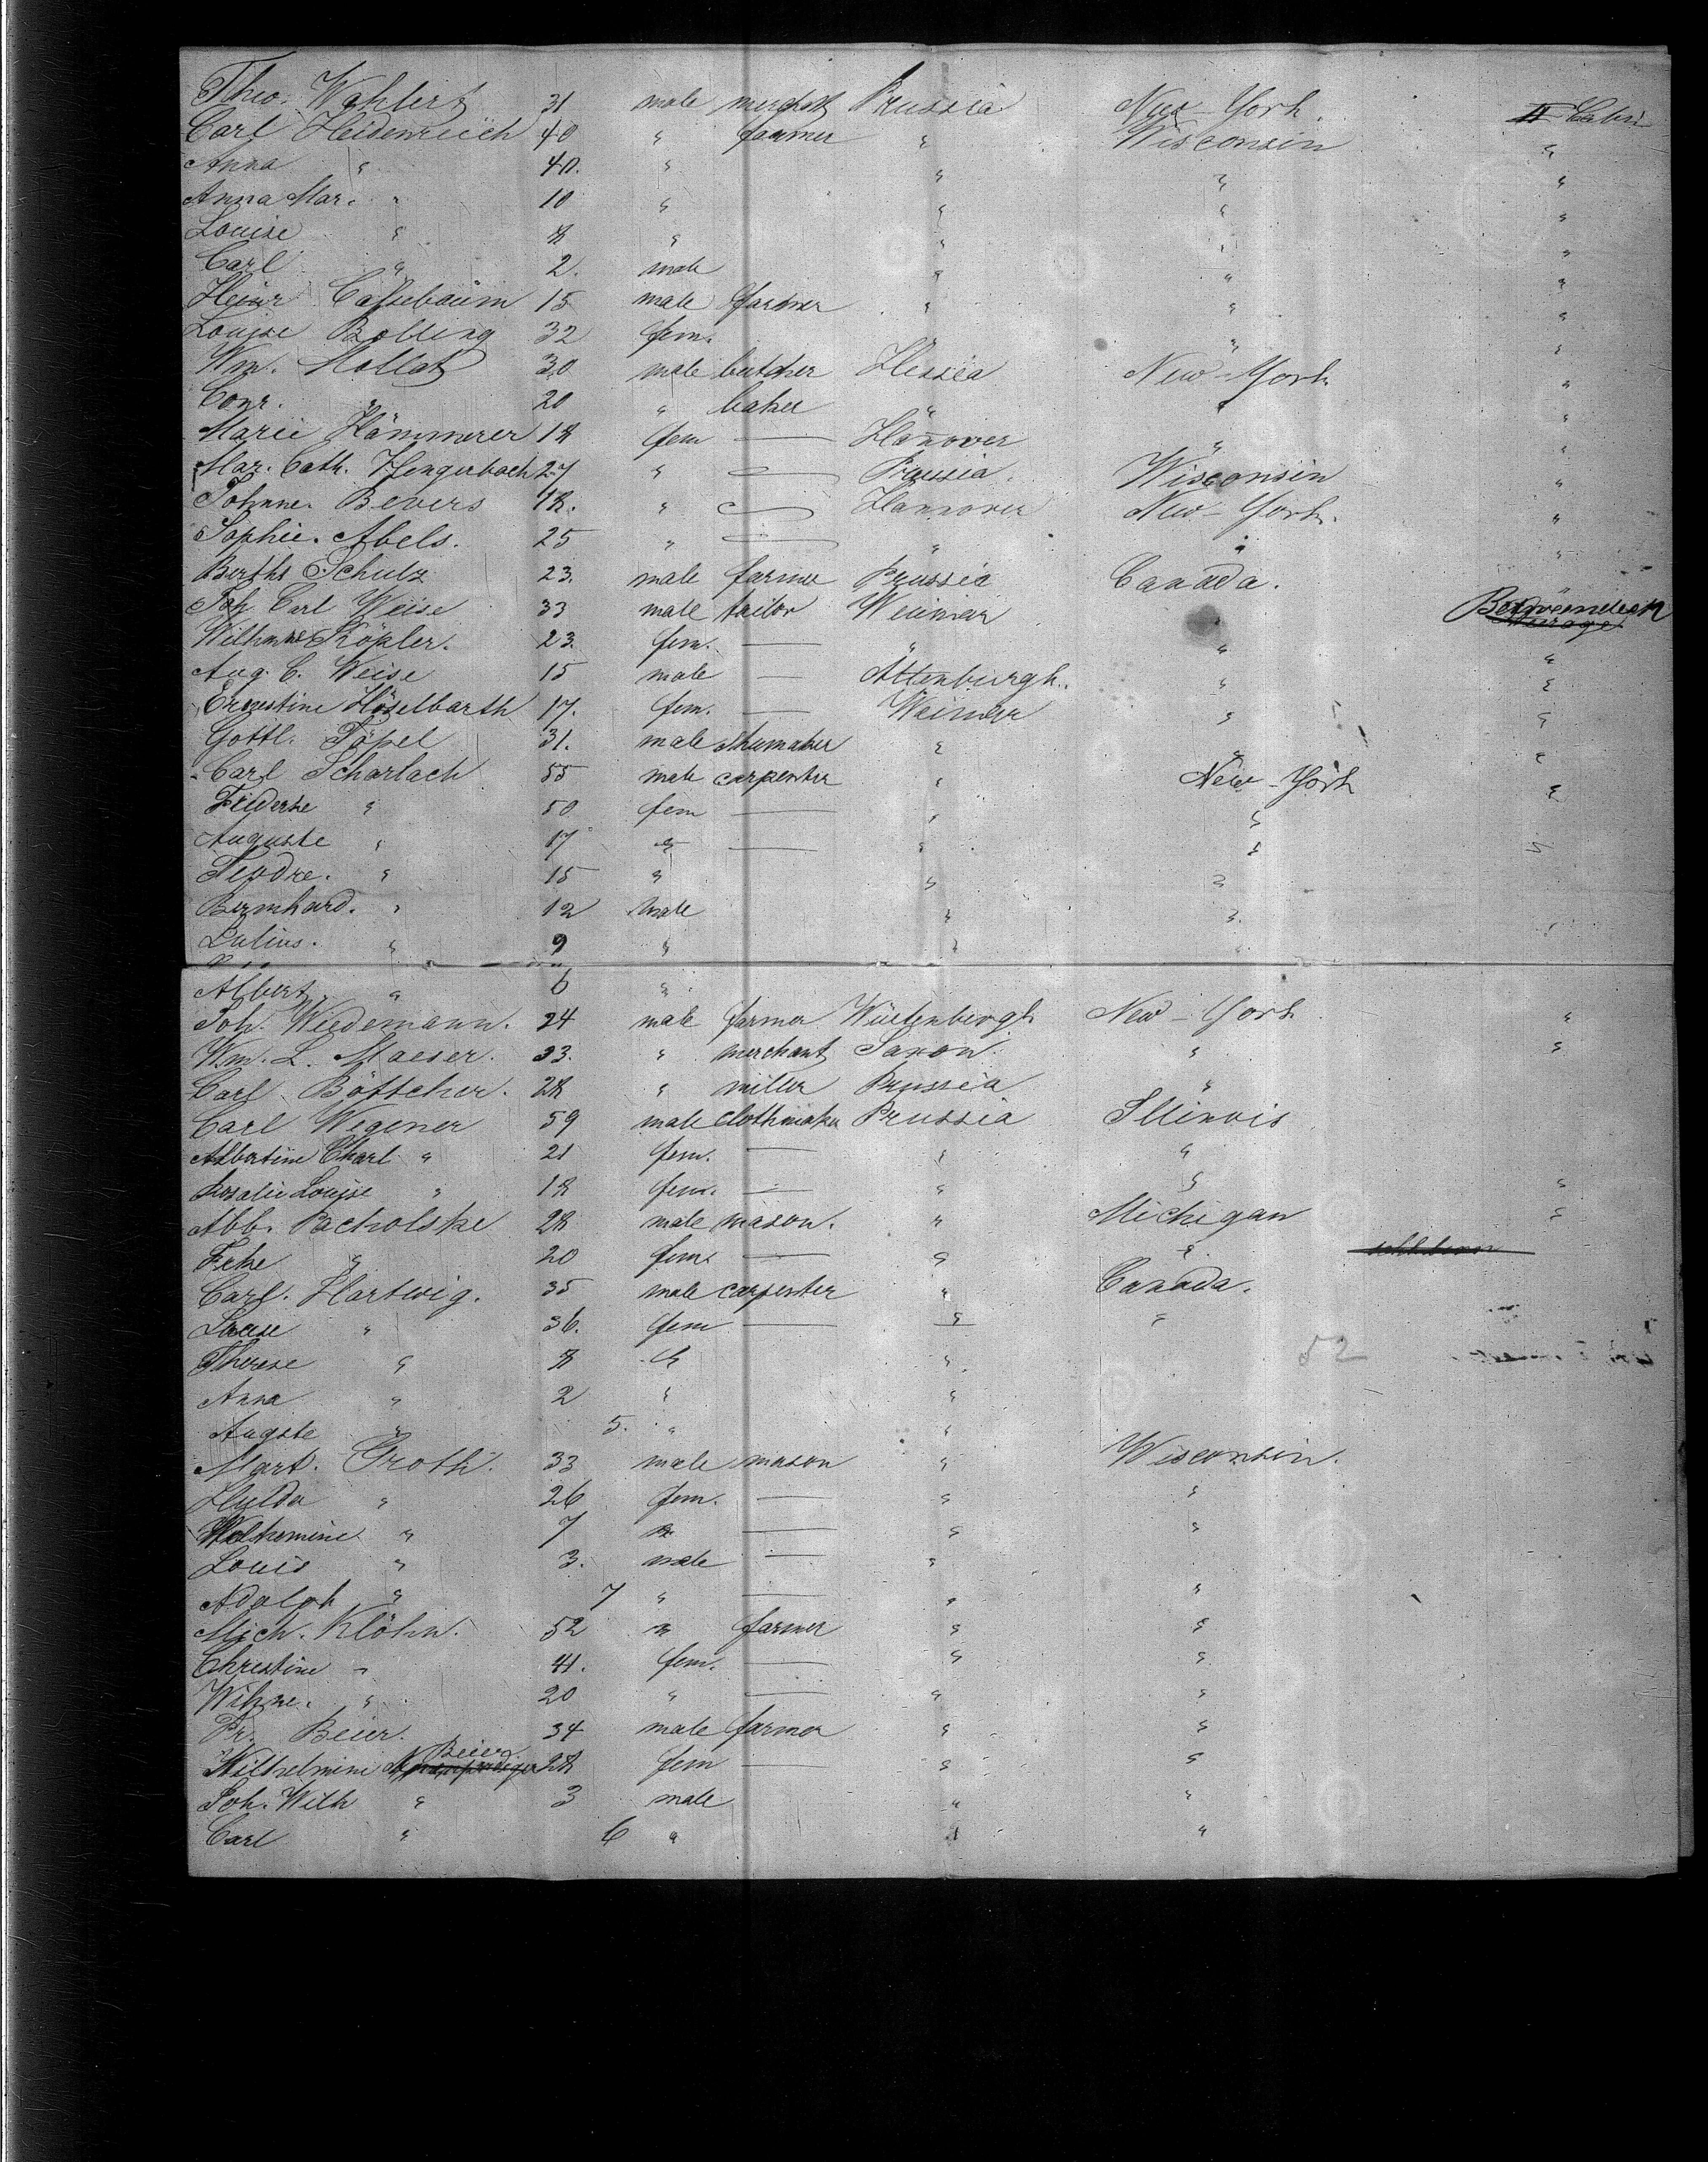 Theo. Wahlert 31 male merchant Prussia New-York. II Cabin
Carl Heidenreich 40 " farmer " Wisconsin "
Anna " 40. " " " "
Anna Mar. " 10 " " " "
Louise " 8 " " " "
Carl " 2. male " " "
Heinr Cassebaum 15 male farmer " " "
Louise Bolling 32 fem. " " "
Wm. Mollat 30 male butcher Hessia New-York "
Conr. " 20 " baker " " "
Marie Hämmerer 18 fem — Hannover " "
Mar. Cath. Hengerbach 27 " — Prussia. Wisconsin "
Johnne. Bevers 18. " — Hannover New-York. "
Sophie. Abels. 25 " — " " "
Berths Schulz 23. male farmer Prussia Canada. "
Joh Carl Weise 33 male tailor Weimar Betweendeck
Wilhmne Köpler. 23. fem. — " " "
Aug. C. Weise 15 male — Altenburgh. " "
Ernestine Höselbarth 17. fem. — Weimar " "
Gottl. Töpel 31. male shumaker " " "
Carl Scharlach 55 male carpenter " New-York "
Friederke " 50 fem — " "
Auguste " 17 " — " " "
Teodre. " 15 " " "
Bernhard. " 12 male " "
Julius. " 9 " " "
Albert " 6 "
Joh. Wiedemann. 24 male farmer Würtenbergh New-York "
Wm. L. Maeser. 33. " merchant Saxon. " "
Carl Böttcher. 28 " miller Prussia "
Carl Wegener 59 male clothmaker Prussia Illinois
Albertine Charl " 21 fem. — " "
Rosalie Louise " 18 fem. — " " "
Alb. Pacholske 28 male mason. " Michigan "
Frke " 20 fem. — " "
Carl. Hartwig. 35 male carpenter " Canada.
Louise " 36. fem — " "
Therese " 8 " " 52
Anna " 2 " "
Augste " 5. " "
Mart. Groth. 33 male mason " Wisconsin.
Hulda " 26 fem. — " "
Wilhemine " 7 " — " "
Louis " 3. male — "
Adolph " 7 " — " "
Mich. Klöhn. 52 " farmer " "
Christine " 41. fem. — " "
Wihne. " 20 " — " "
Fr. Beier. 34 male farmer " "
Wilhelmine Beier 28 fem — " "
Joh. Wilh " 3 male " "
Carl " 6 " " "